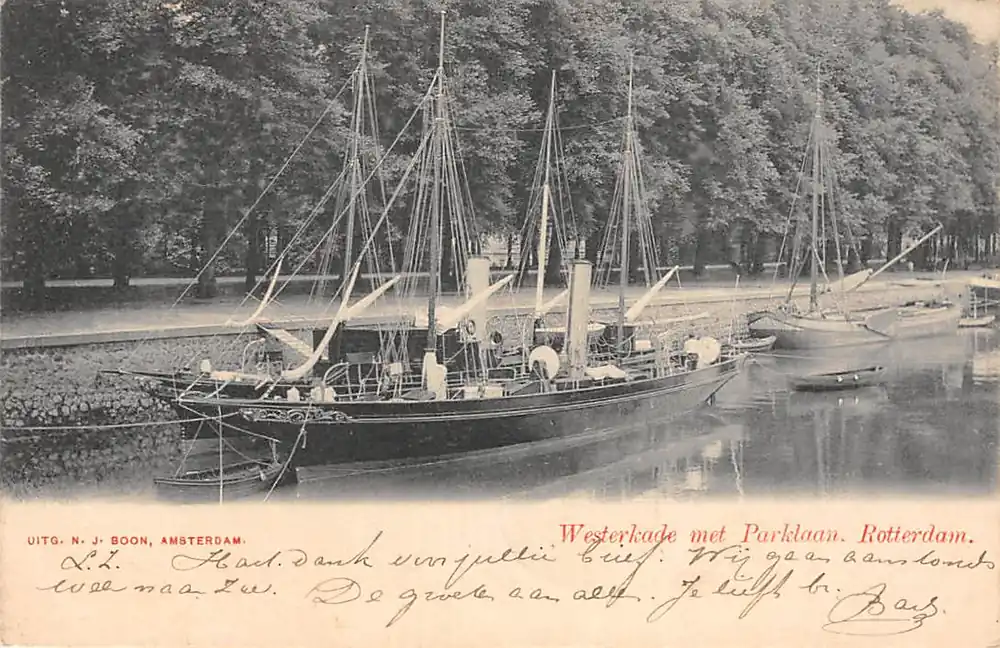 UITG. N. J. BOON, AMSTERDAM.
Westerkade met Parklaan. Rotterdam.
L. Z. Hart. dank voor jullie brief. Wij gaan aanstonds
weer naar Zee. De groeten aan allen. Je liefh br.